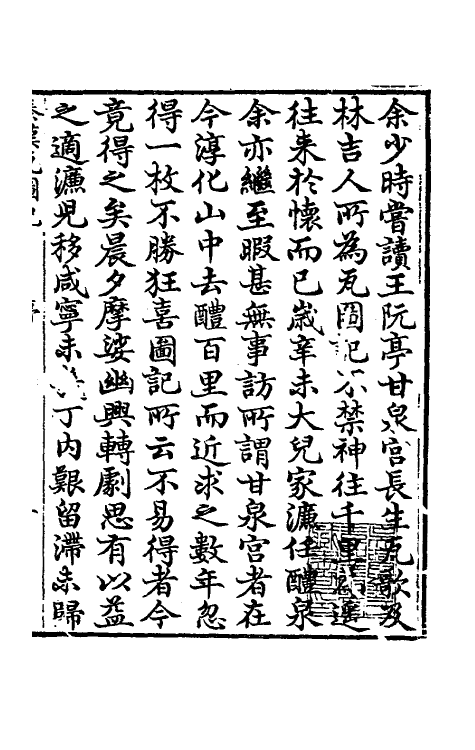 余少時嘗讀王阮亭甘泉宮長生瓦歌及
林吉人所為瓦圖記不禁神往千里遙
往來於懷而已歲辛未大兒家濂任醴泉
余亦繼至暇甚無事訪所謂甘泉宮者在
今淳化山中去醴百里而近求之數年忽
得一枚不勝狂喜圖記所云不易得者今
竟得之矣晨夕摩娑幽興轉劇思有以益
之適濂兒移咸寧未丁內艱留滯未歸
秦漢瓦圖記
序